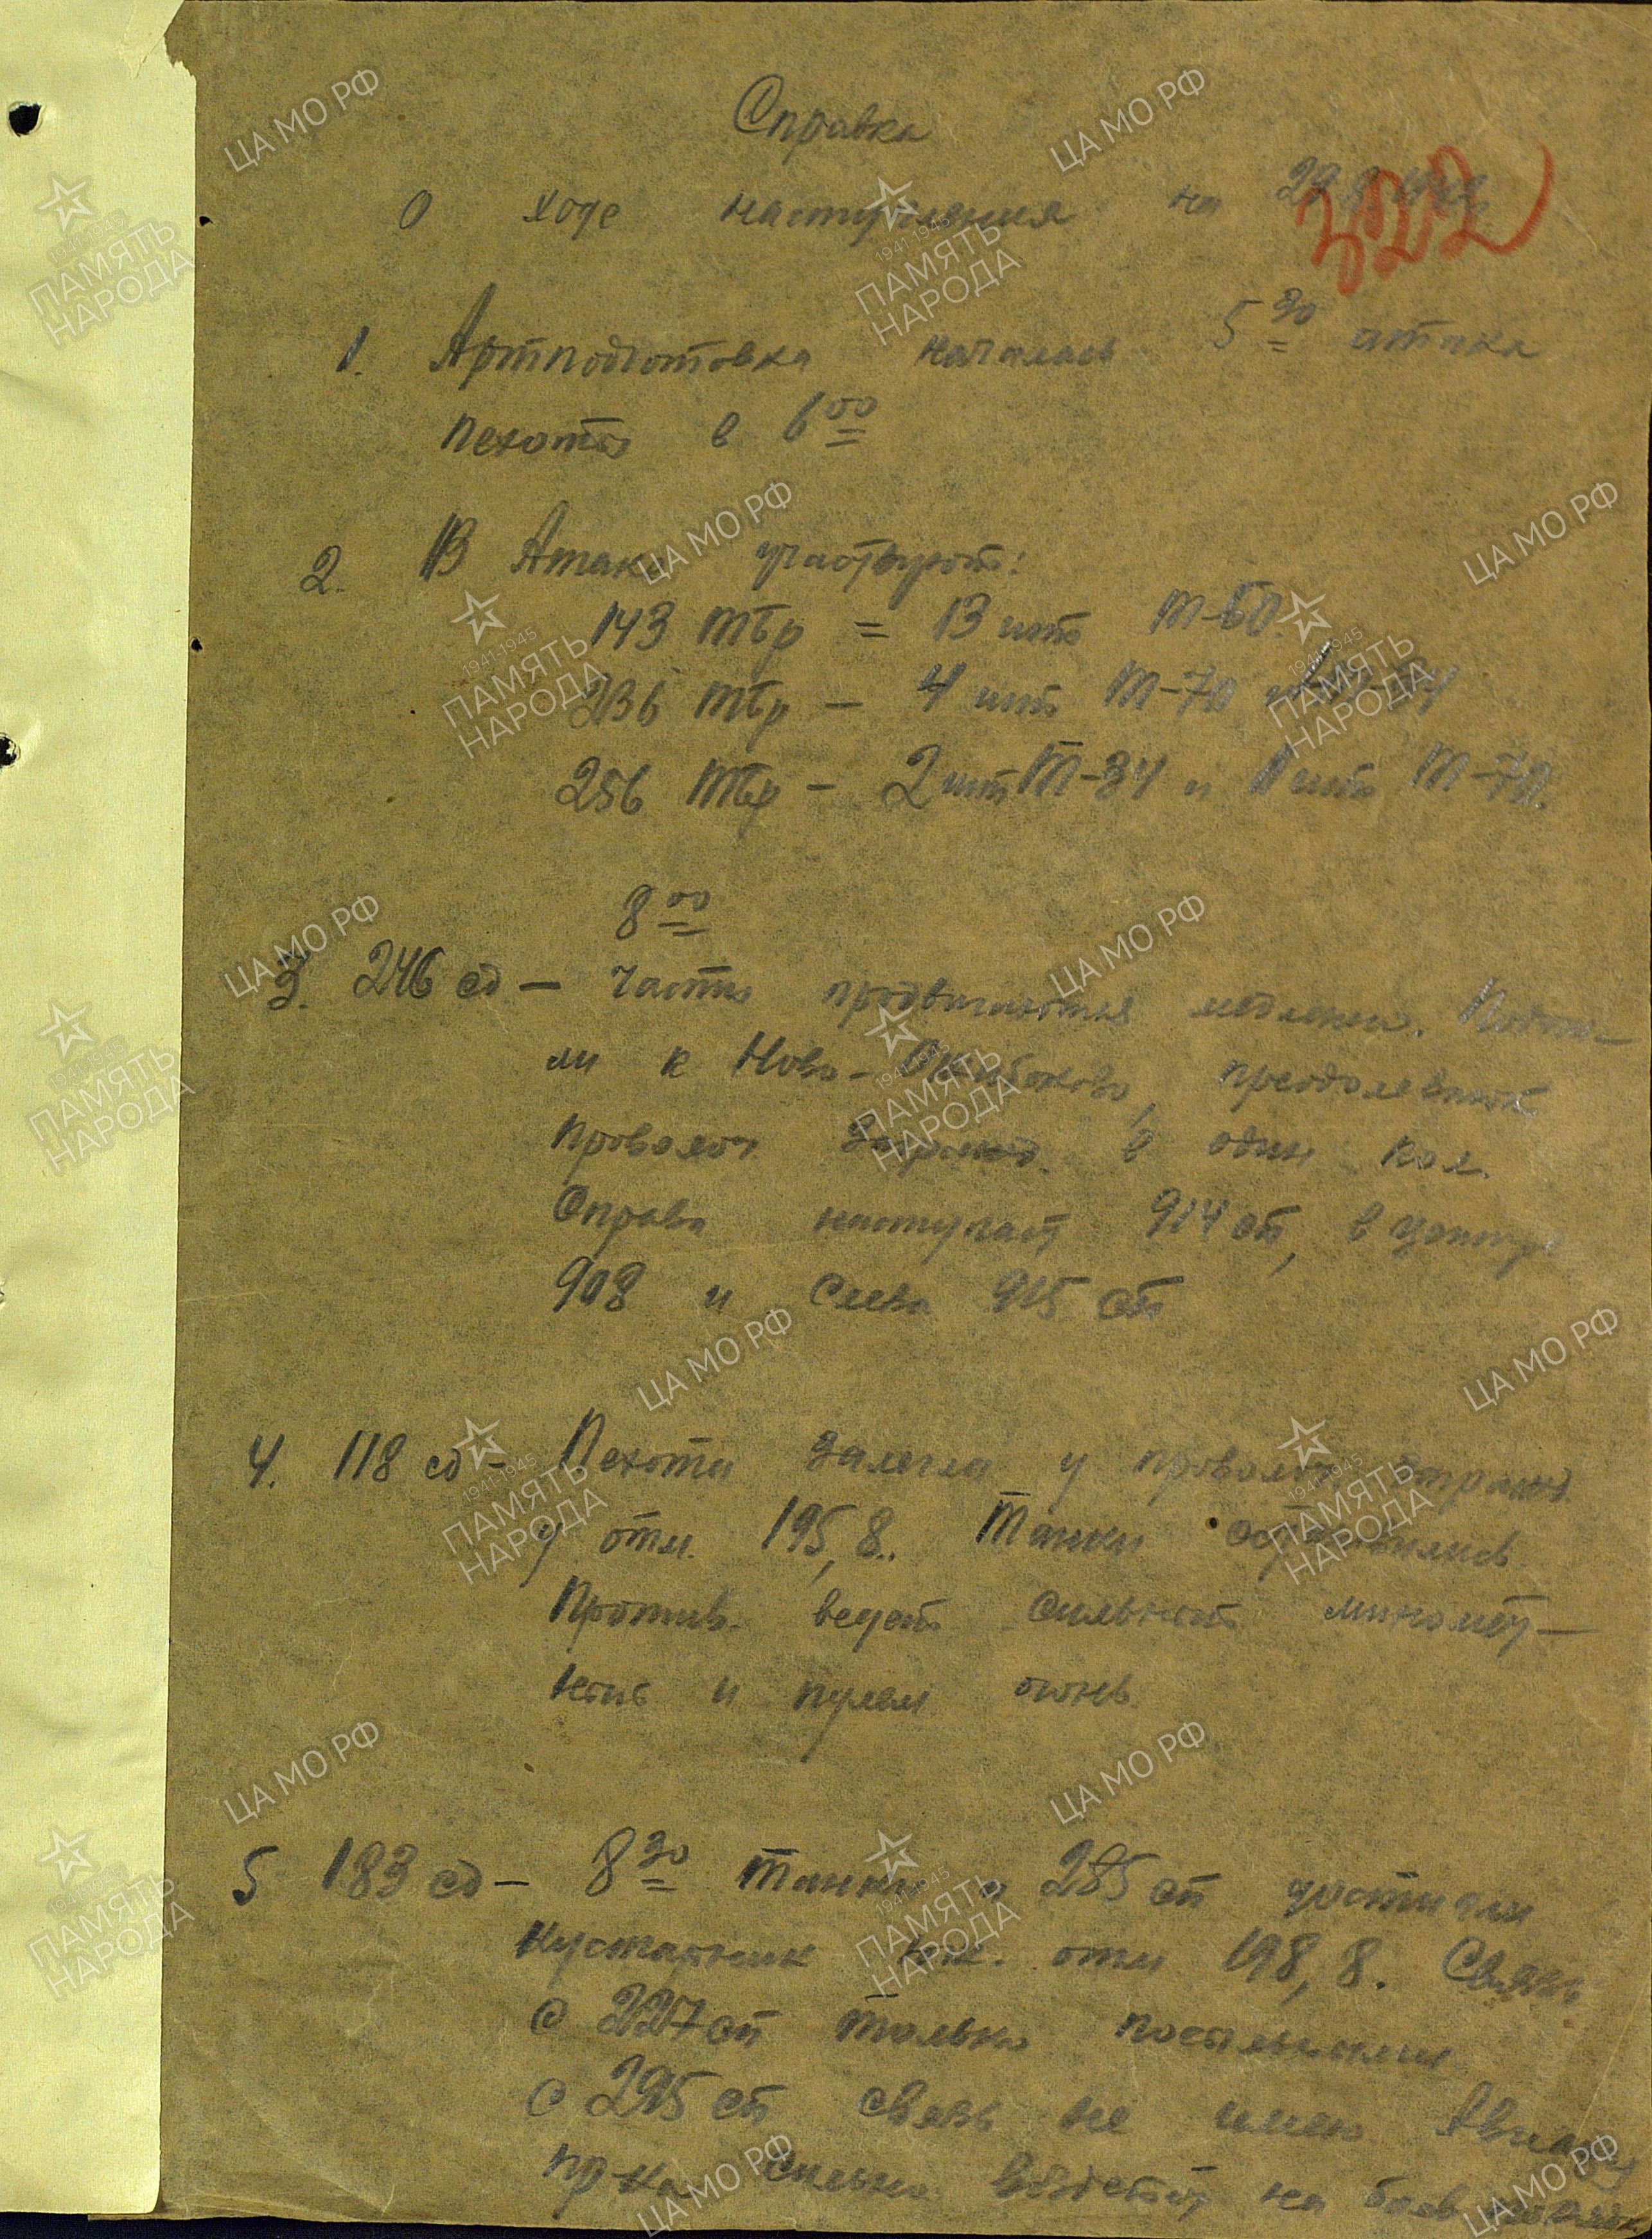 Справка
о ходе наступления на 29.8.1942
322
1. Артподготовка началась 5 30 атака
пехоты в 6 00
2. В Атаке участвуют:
143 тбр = 13 шт Т-60.
236 тбр – 4 шт Т-70
256 тбр – 2 шт Т-34 и 1 шт Т-70.
8 00
3. 246 сд – Части продвигаются медленно. Подош-
ли к Ново- преодолевают
проволоч. заражд. в один кол.
Справа наступает 914 сп, в центре
908 и слева 915 сп
4. 118 сд – Пехота залегла у проволоч. заражд.
у отм. 195,8. Танки остановились
Против. ведет сильный миномет-
ный и пулем огонь.
5 183 сд – 8 30 танки и 285 сп достигли
кустарник юж. отм 198,8. Связь
с 227 сп только посыльными
с 295 сп связь не имею Авиац
пр-ка сильно воздейст на боев порядки
ЦА МО РФ
1941-1945
ПАМЯТЬ
НАРОДА